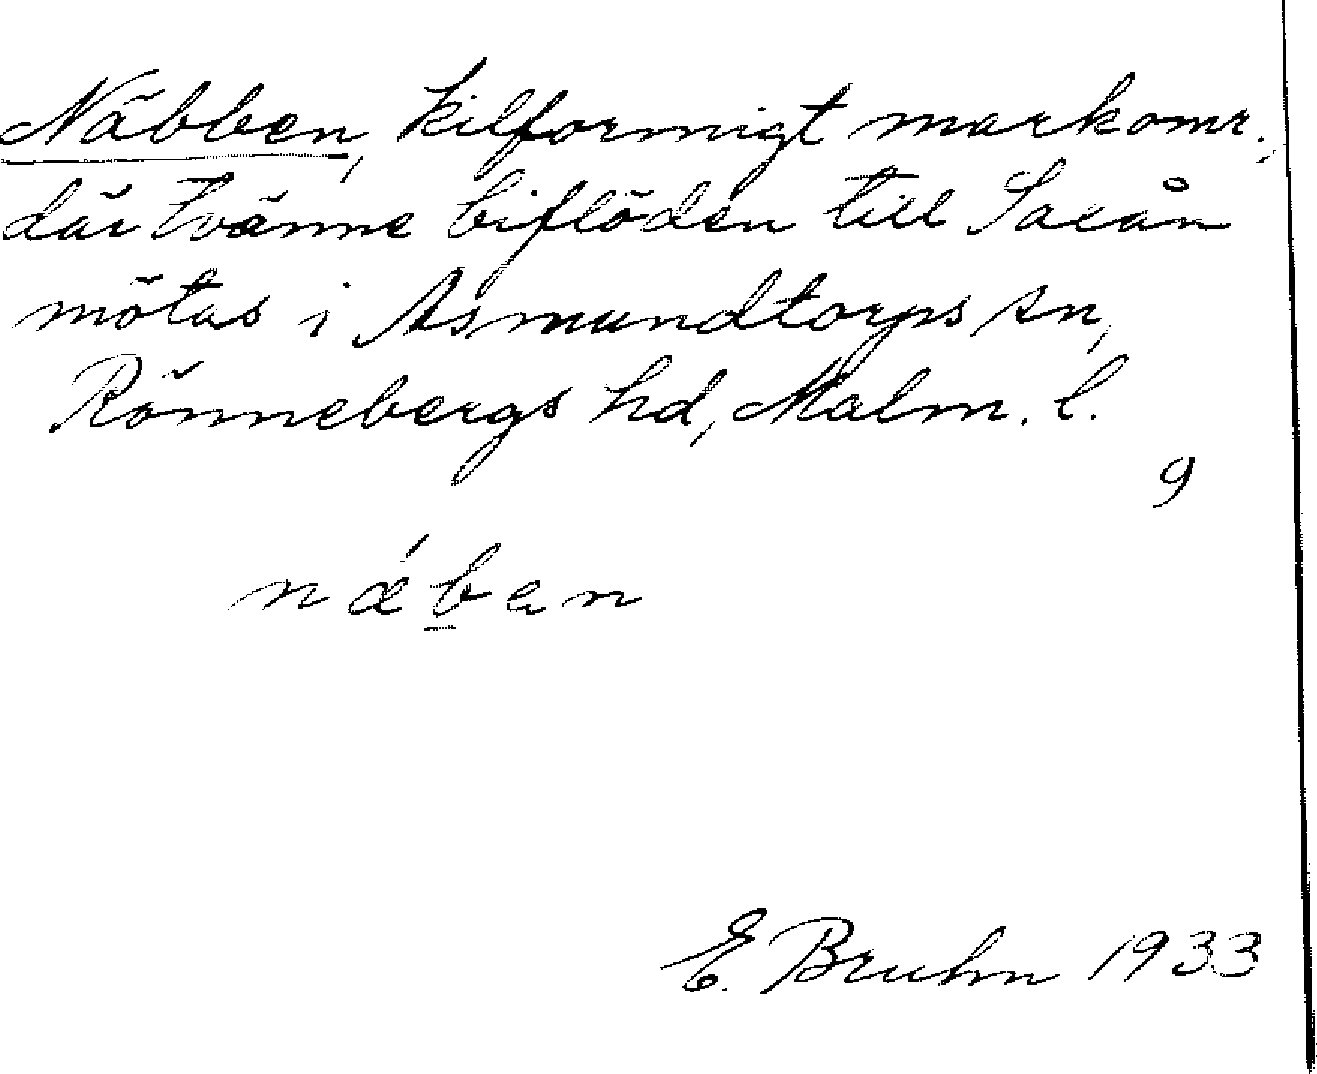 Näbben, kilformigt markomr.,
där tvänne biflöden till Saxån
mötas i Asmundtorps sn,
Rönnebergs hd, Malm. l.
9
nǽban
E. Bruhn 1933